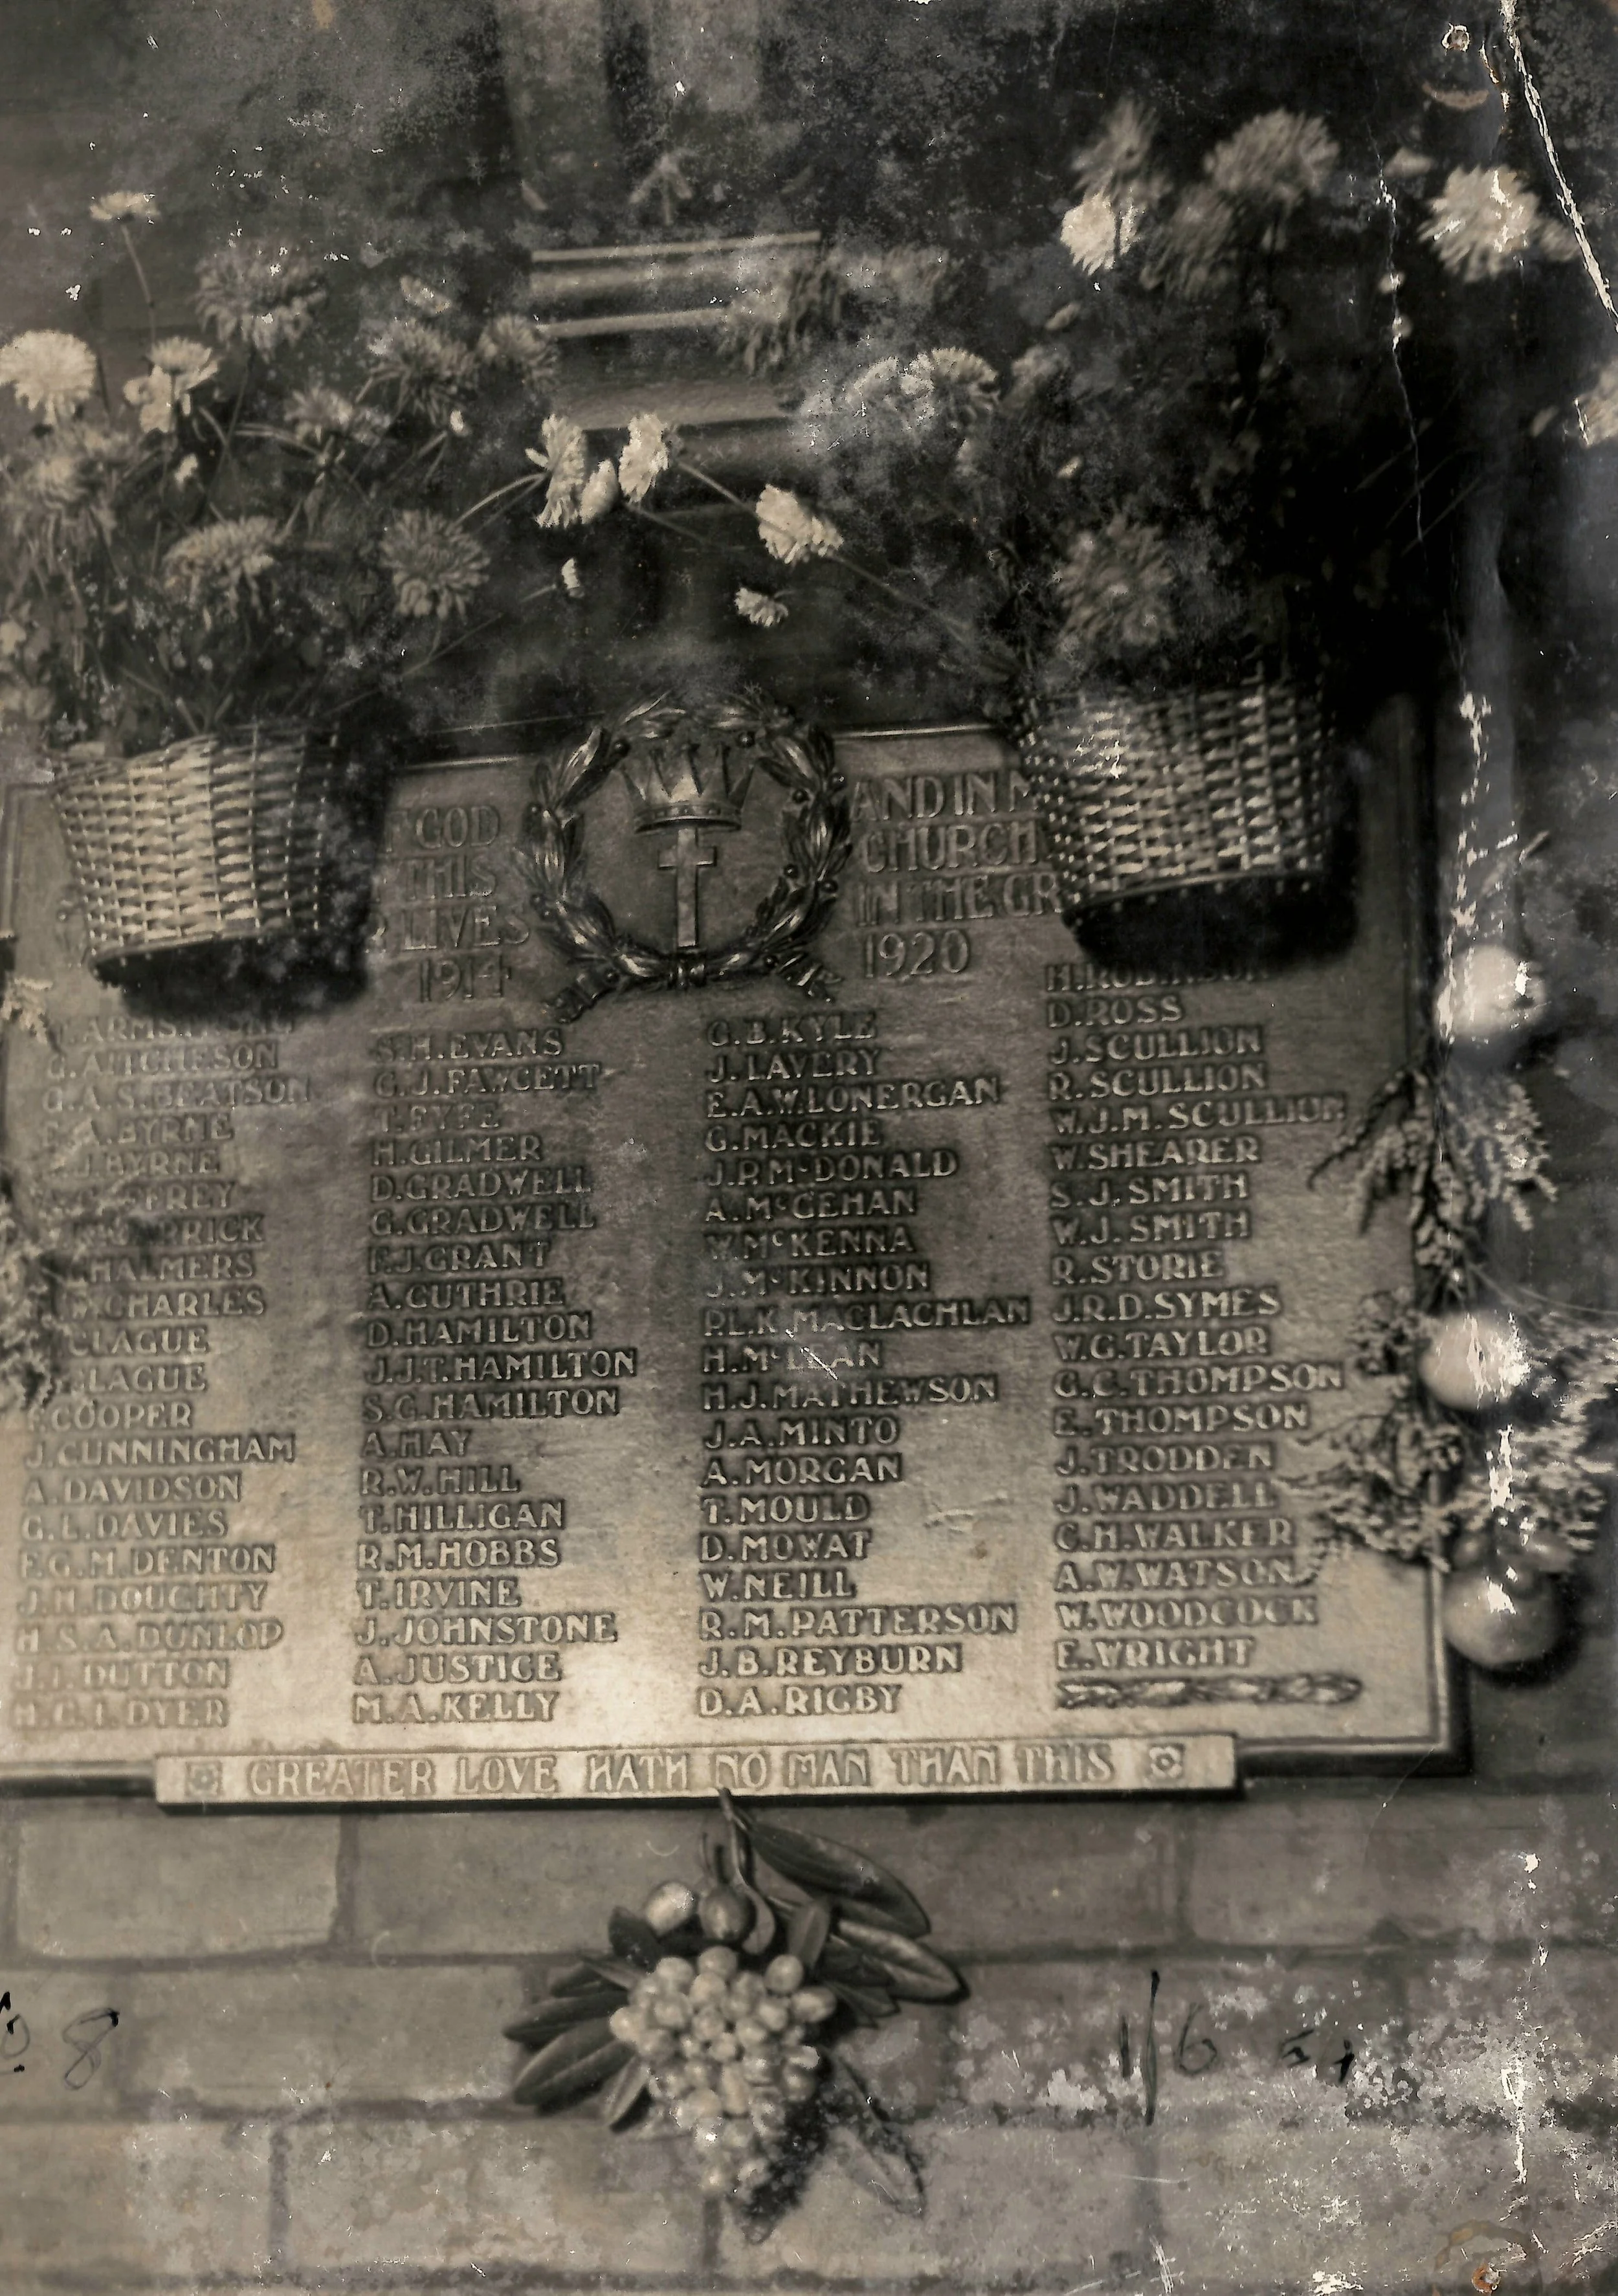 GOD
THIS
LIVES
1914
AND IN
CHURCH
IN THE GR
1920
G.AITCHESON
G.A.S.BEATSON
A.BYRNE
J.BYRNE
CHARLES
CLAGUE
COOPER
J.CUNNINGHAM
A.DAVIDSON
G.L.DAVIES
F.G.M.DENTON
J.H.DOUGHTY
H.S.A.DUNLOP
DUTTON
DYER
S.H.EVANS
G.J.FAWCETT
T.FYFE
H.GILMER
D.GRADWELL
G.GRADWELL
F.J.GRANT
A.GUTHRIE
D.HAMILTON
J.J.T.HAMILTON
S.G.HAMILTON
A.HAY
R.W.HILL
T.HILLIGAN
R.M.HOBBS
T.IRVINE
J.JOHNSTONE
A.JUSTICE
M.A.KELLY
G.B.KYLE
J.LAVERY
E.A.W.LONERGAN
G.MACKIE
J.P.McDONALD
A.McGEHAN
W.McKENNA
J.McKINNON
P.L.K.MACLACHLAN
H.McLEAN
H.J.MATHEWSON
J.A.MINTO
A.MORGAN
T.MOULD
D.MOWAT
W.NEILL
R.M.PATTERSON
J.B.REYBURN
D.A.RIGBY
H.ROBINSON
D.ROSS
J.SCULLION
R.SCULLION
W.J.M.SCULLION
W.SHEARER
S.J.SMITH
W.J.SMITH
R.STORIE
J.R.D.SYMES
W.G.TAYLOR
G.C.THOMPSON
E.THOMPSON
J.TRODDEN
J.WADDELL
C.H.WALKER
A.W.WATSON
W.WOODCOCK
E.WRIGHT
GREATER LOVE HATH NO MAN THAN THIS
8
1/6